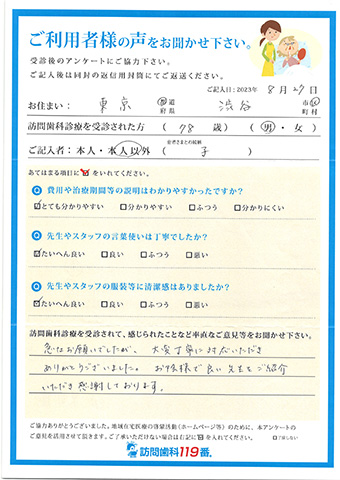 ご利用者様の声をお聞かせ下さい。
受診後のアンケートにご協力下さい。
ご記入後は同封の返信用封筒にてご返送ください。
ご記入日:2023年 8月27日
お住まい: 東京 都道府県 渋谷 市区町村
訪問歯科診療を受診された方 ( 78 歳) (男・女)
ご記入者:本人・本人以外 (患者さまとの続柄 子 )
あてはまる項目に☑をいれてください。
Q 費用や治療期間等の説明はわかりやすかったですか?
☑とても分かりやすい □分かりやすい □ふつう □分かりにくい
Q 先生やスタッフの言葉使いは丁寧でしたか?
☑たいへん良い □良い □ふつう □悪い
Q 先生やスタッフの服装等に清潔感はありましたか?
☑たいへん良い □良い □ふつう □悪い
訪問歯科診療を受診されて、感じられたことなど率直なご意見等をお聞かせ下さい。
急なお願いでしたが、大変丁寧に対応いただき
ありがとうございました。お陰様で良い先生をご紹介
いただき感謝しております。
ご協力ありがとうございました。地域在宅医療の啓蒙活動(ホームページ等)のために、本アンケートの
ご意見を活用させて頂きます。ご了承いただけない場合は右記に☑を入れてください。 □了承しない
訪問歯科119番®